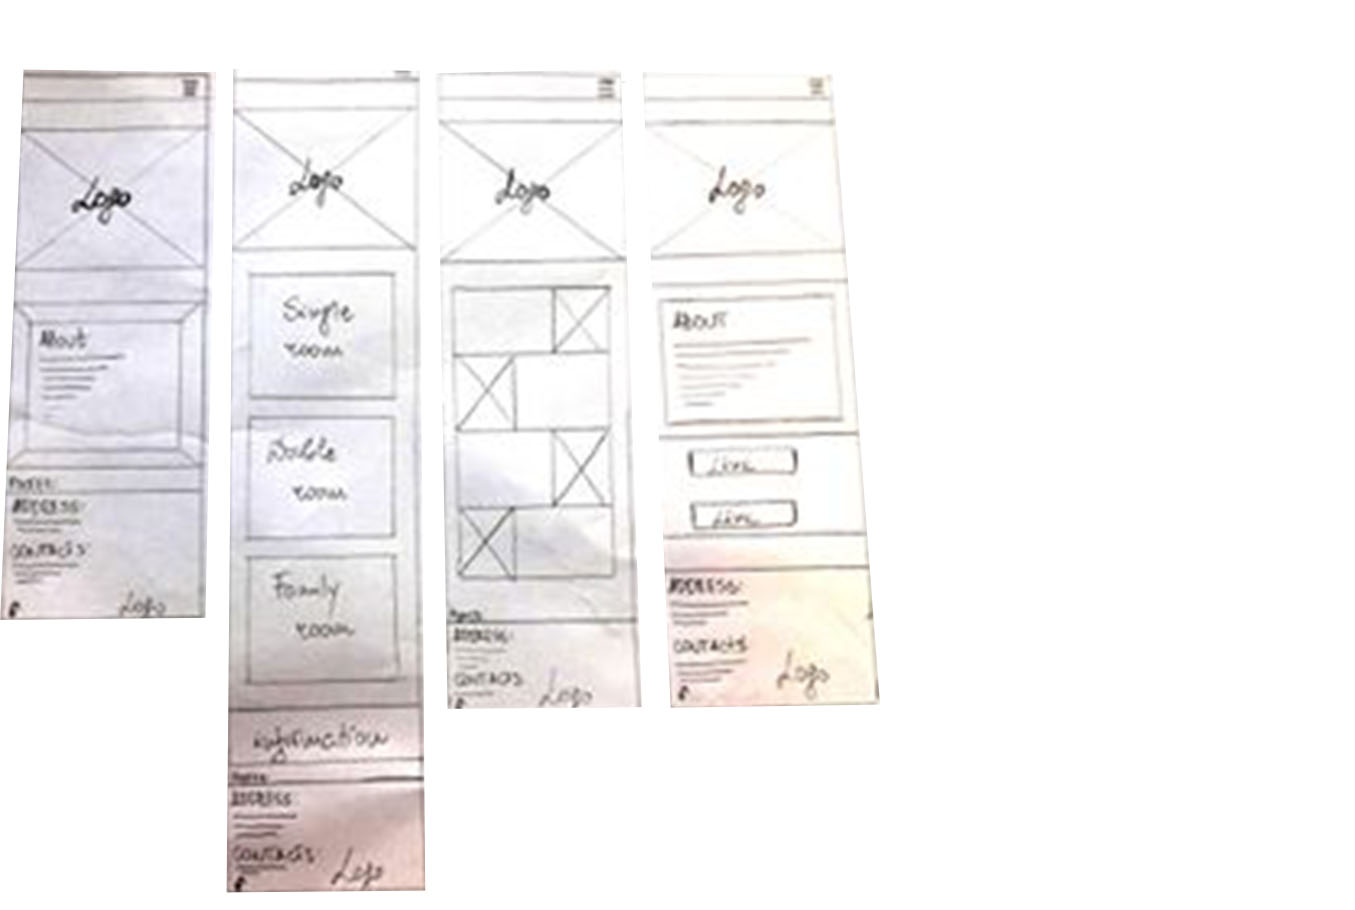 Logo
About
ADDRESS:
CONTACTS:
Logo
Logo
Single
room
Double
room
Family
room
information
ADDRESS
CONTACTS:
Logo
Logo
ADDRESS:
CONTACTS
Logo
Logo
ABOUT
ADDRESS:
CONTACTS
Logo